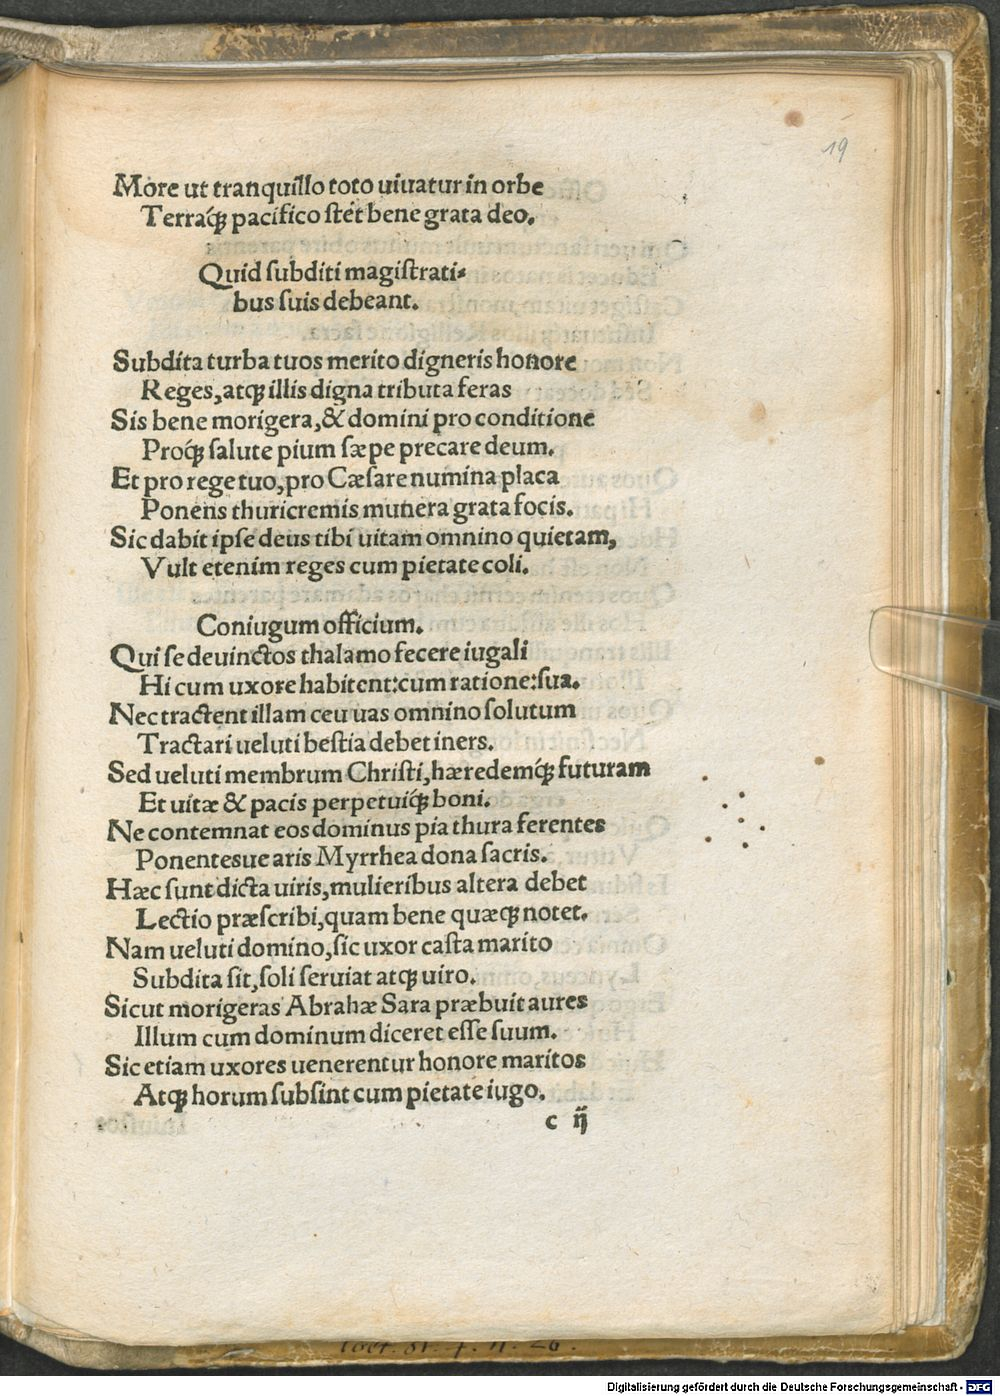 19
More ut tranquillo toto uiuatur in orbe
Terraq́ꝫ pacifico stet bene grata deo.
Quid subditi magistrati-
bus suis debeant.
Subdita turba tuos merito digneris honore
Reges, atqꝫ illis digna tributa feras
Sis bene morigera, & domini pro conditione
Proq́ꝫ salute pium sæpe precare deum.
Et pro rege tuo, pro Cæsare numina placa
Ponens thuricremis munera grata focis.
Sic dabit ipse deus tibi uitam omnino quietam,
Vult etenim reges cum pietate coli.
Coniugum officium.
Qui se deuinctos thalamo fecere iugali
Hi cum uxore habitent: cum ratione: sua.
Nec tractent illam ceu uas omnino solutum
Tractari ueluti bestia debet iners.
Sed ueluti membrum Christi, hæredemq́ꝫ futuram
Et uitæ & pacis perpetuiq́ꝫ boni.
Ne contemnat eos dominus pia thura ferentes
Ponentesue aris Myrrhea dona sacris.
Hæc sunt dicta uiris, mulieribus altera debet
Lectio præscribi, quam bene quæqꝫ notet.
Nam ueluti domino, sic uxor casta marito
Subdita sit, soli seruiat atqꝫ uiro.
Sicut morigeras Abrahæ Sara præbuit aures
Illum cum dominum diceret esse suum.
Sic etiam uxores uenerentur honore maritos
Atqꝫ horum subsint cum pietate iugo.
c ij
Digitalisierung gefördert durch die Deutsche Forschungsgemeinschaft - DFG